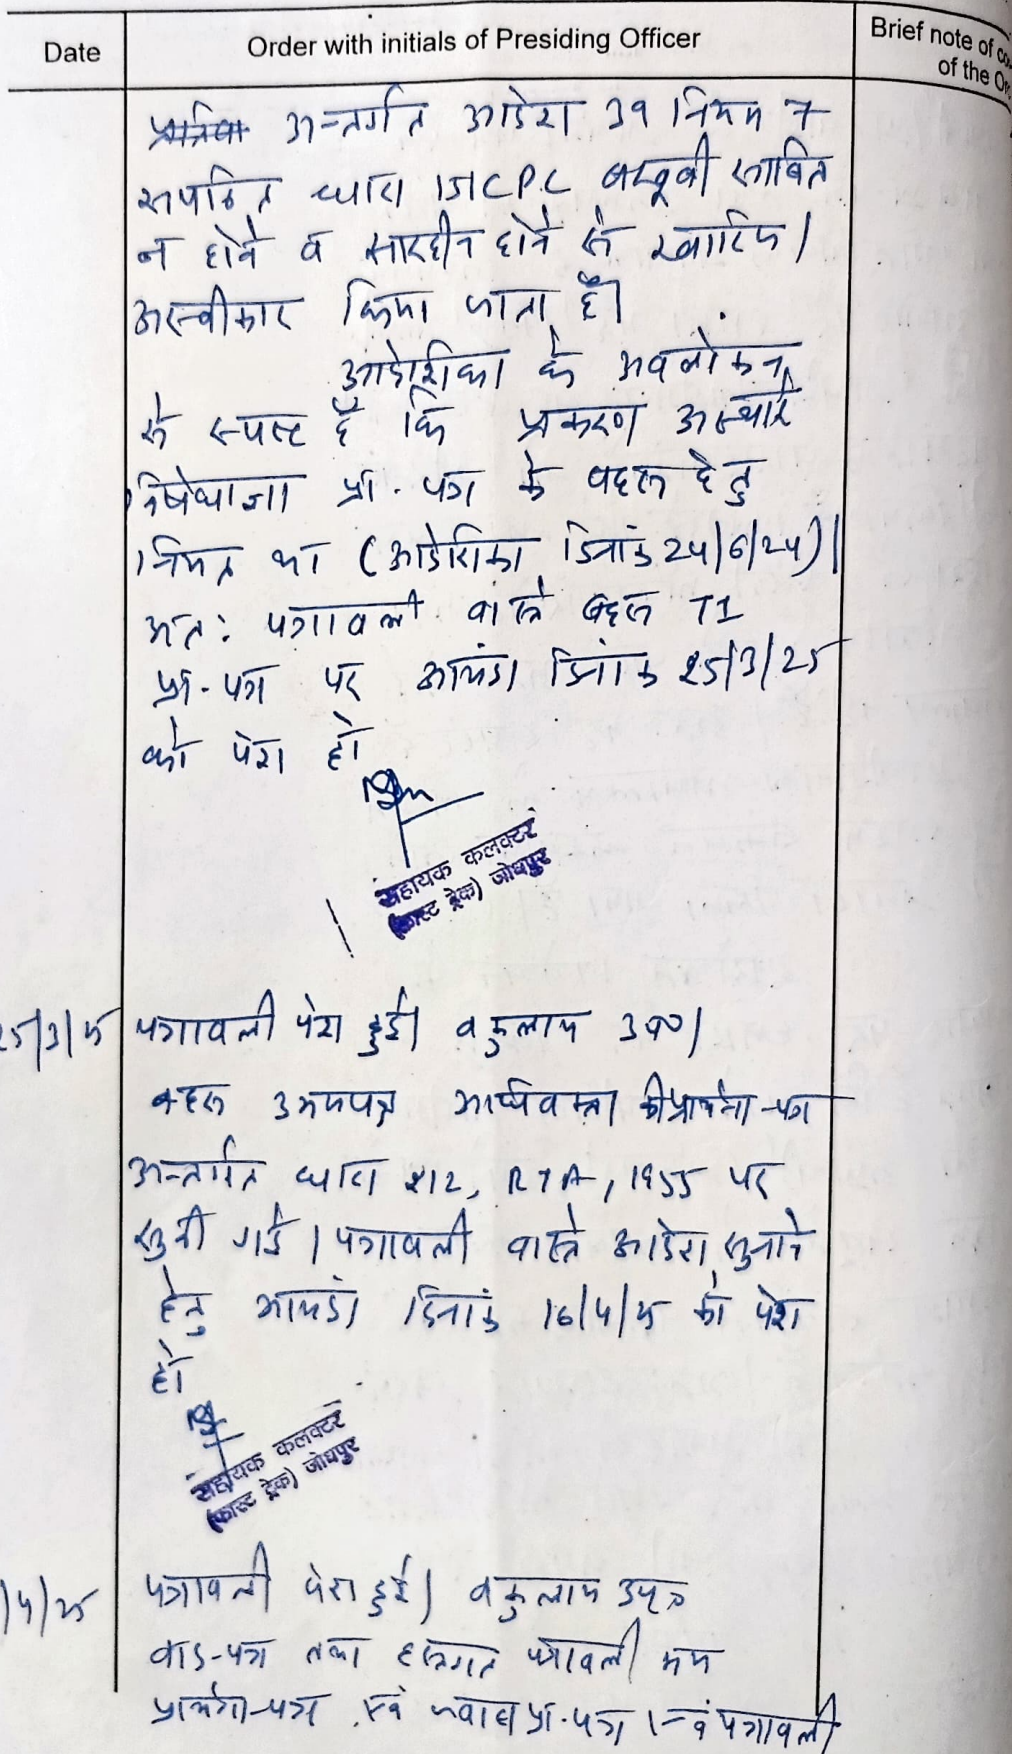 Date
Order with initials of Presiding Officer
Brief note of
of the
अन्तर्गत आदेश 39 नियम 7
सपठित धारा 151 CPC बखूबी साबित
न होने व सारहीन होने से खारिज/
अस्वीकार किया जाता है।
आदेशिका के अवलोकन
से स्पष्ट है कि प्रकरण अस्थाई
निषेधाज्ञा प्रा.पत्र के बहस हेतु
नियत था (आदेशिका दिनांक 24/6/24)।
अतः पत्रावली वास्ते बहस TI
प्रा.पत्र पर आयंदा दिनांक 25/3/25
को पेश हो
सहायक कलक्टर
(फास्ट ट्रेक) जोधपुर
25/3/25
पत्रावली पेश हुई। वकुलाय उप०।
बहस उभयपक्ष अधिवक्ता की प्रार्थना-पत्र
अन्तर्गत धारा 212, RTA, 1955 पर
सुनी गई। पत्रावली वास्ते आदेश सुनाने
हेतु आयंदा दिनांक 16/4/25 को पेश
हो
सहायक कलक्टर
(फास्ट ट्रेक) जोधपुर
/4/25
पत्रावली पेश हुई। वकुलाय
वाद-पत्र तथा हस्तगत पत्रावली मय
प्रार्थना-पत्र एवं जवाब प्रा.पत्र एवं पत्रावली